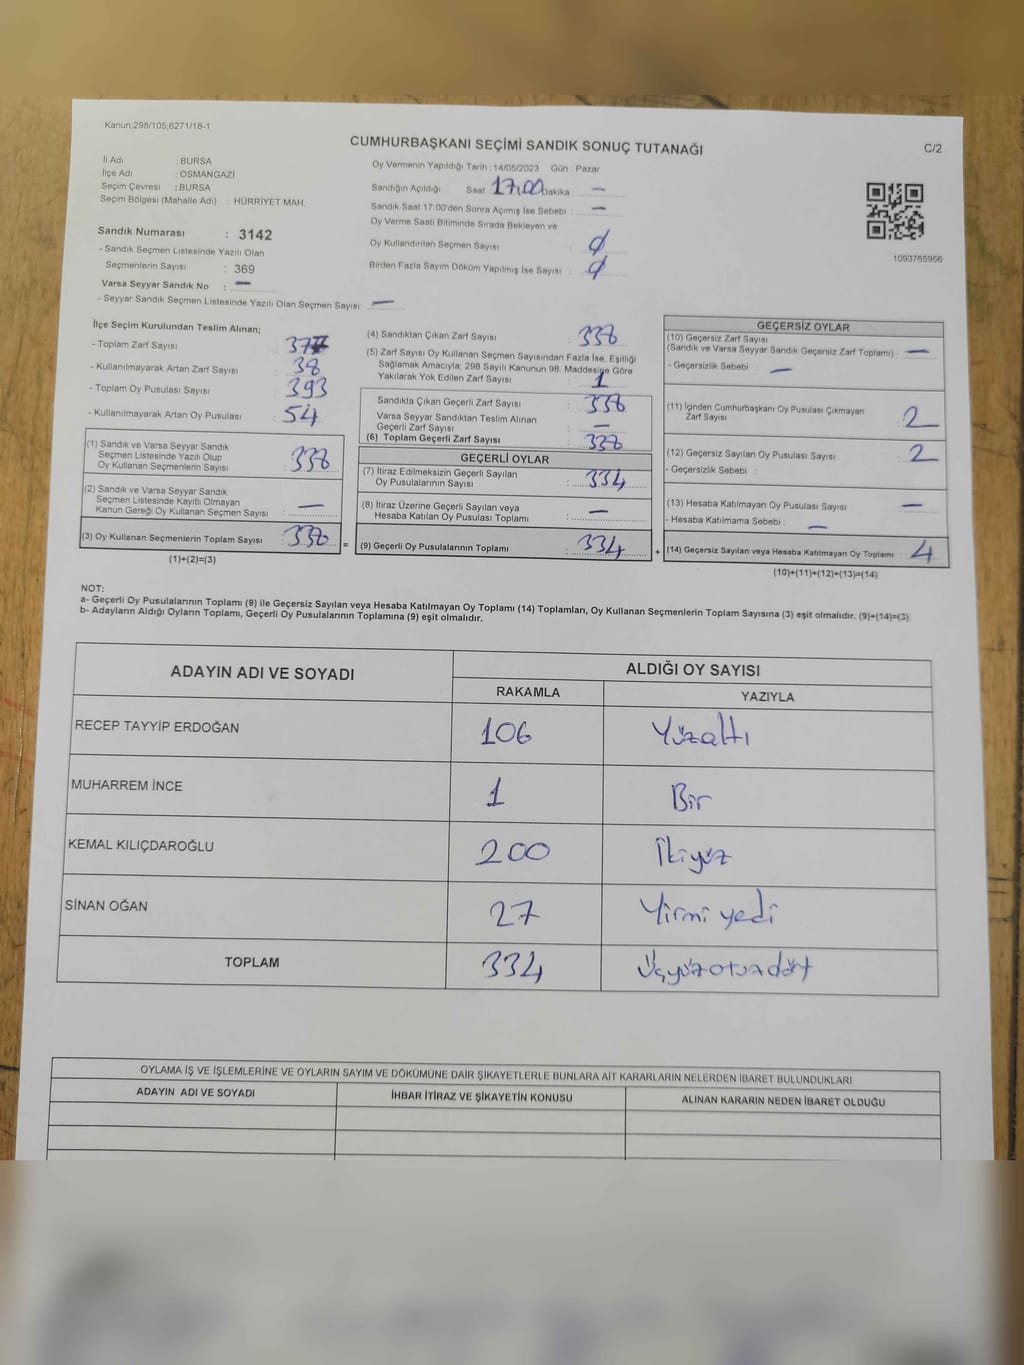 Kanun,298/105,6271/18-1
CUMHURBAŞKANI SEÇİMİ SANDIK SONUÇ TUTANAĞI
C/2
İl Adı : BURSA
İlçe Adı : OSMANGAZİ
Seçim Çevresi : BURSA
Seçim Bölgesi (Mahalle Adı) : HÜRRİYET MAH.
Oy Vermenin Yapıldığı Tarih : 14/05/2023 Gün : Pazar
Sandığın Açıldığı Saat 17.00 Dakika : —
Sandık Saat 17:00'den Sonra Açımış İse Sebebi : —
Oy Verme Saati Bitiminde Sırada Bekleyen ve
Oy Kullandırılan Seçmen Sayısı : 0
Birden Fazla Sayım Döküm Yapılmış İse Sayısı : 0
1093765956
Sandık Numarası : 3142
- Sandık Seçmen Listesinde Yazılı Olan
Seçmenlerin Sayısı : 369
Varsa Seyyar Sandık No : —
- Seyyar Sandık Seçmen Listesinde Yazılı Olan Seçmen Sayısı: —
İlçe Seçim Kurulundan Teslim Alınan;
- Toplam Zarf Sayısı : 377
- Kullanılmayarak Artan Zarf Sayısı : 38
- Toplam Oy Pusulası Sayısı : 393
- Kullanılmayarak Artan Oy Pusulası : 54
(1) Sandık ve Varsa Seyyar Sandık
Seçmen Listesinde Yazılı Olup
Oy Kullanan Seçmenlerin Sayısı : 338
(2) Sandık ve Varsa Seyyar Sandık
Seçmen Listesinde Kayıtlı Olmayan
Kanun Gereği Oy Kullanan Seçmen Sayısı : —
(3) Oy Kullanan Seçmenlerin Toplam Sayısı : 338 =
(1)+(2)=(3)
(4) Sandıktan Çıkan Zarf Sayısı : 338
(5) Zarf Sayısı Oy Kullanan Seçmen Sayısından Fazla İse, Eşitliği
Sağlamak Amacıyla; 298 Sayılı Kanunun 98. Maddesine Göre
Yakılarak Yok Edilen Zarf Sayısı : 1
Sandıkta Çıkan Geçerli Zarf Sayısı : 338
Varsa Seyyar Sandıktan Teslim Alınan
Geçerli Zarf Sayısı : —
(6) Toplam Geçerli Zarf Sayısı : 338
GEÇERLİ OYLAR
(7) İtiraz Edilmeksizin Geçerli Sayılan
Oy Pusulalarının Sayısı : 334
(8) İtiraz Üzerine Geçerli Sayılan veya
Hesaba Katılan Oy Pusulası Toplamı : —
(9) Geçerli Oy Pusulalarının Toplamı : 334 +
GEÇERSİZ OYLAR
(10) Geçersiz Zarf Sayısı
(Sandık ve Varsa Seyyar Sandık Geçersiz Zarf Toplamı) : —
- Geçersizlik Sebebi : —
(11) İçinden Cumhurbaşkanı Oy Pusulası Çıkmayan
Zarf Sayısı : 2
(12) Geçersiz Sayılan Oy Pusulası Sayısı : 2
- Geçersizlik Sebebi :
(13) Hesaba Katılmayan Oy Pusulası Sayısı : —
- Hesaba Katılmama Sebebi : —
(14) Geçersiz Sayılan veya Hesaba Katılmayan Oy Toplamı : 4
(10)+(11)+(12)+(13)=(14)
NOT:
a- Geçerli Oy Pusulalarının Toplamı (9) ile Geçersiz Sayılan veya Hesaba Katılmayan Oy Toplamı (14) Toplamları, Oy Kullanan Seçmenlerin Toplam Sayısına (3) eşit olmalıdır. (9)+(14)=(3)
b- Adayların Aldığı Oyların Toplamı, Geçerli Oy Pusulalarının Toplamına (9) eşit olmalıdır.
ADAYIN ADI VE SOYADI
ALDIĞI OY SAYISI
RAKAMLA YAZIYLA
RECEP TAYYİP ERDOĞAN 106 Yüzaltı
MUHARREM İNCE 1 Bir
KEMAL KILIÇDAROĞLU 200 İkiyüz
SİNAN OĞAN 27 Yirmi yedi
TOPLAM 334 Üçyüzotuzdört
OYLAMA İŞ VE İŞLEMLERİNE VE OYLARIN SAYIM VE DÖKÜMÜNE DAİR ŞİKAYETLERLE BUNLARA AİT KARARLARIN NELERDEN İBARET BULUNDUKLARI
ADAYIN ADI VE SOYADI İHBAR İTİRAZ VE ŞİKAYETİN KONUSU ALINAN KARARIN NEDEN İBARET OLDUĞU